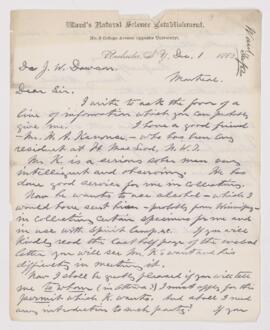 Ward's Natural Science Establishment.
No. 2 College Avenue opposite University.
Rochester, N.Y. Dec. 1 188
Ward
Dr J. W. Dawson
Montreal
Dear Sir.
I write to ask the favor of a
line of information which you can possibly
give me. I have a good friend
- Mr. - who has been long
resident at Ft Mac Leod, N.W.T.
Mr. K is a serious sober man very
intelligent and observing. He has
done good service for me in collecting.
Now he wants to use alcohol - which I
would have sent him - probably from Winnipeg -
in collecting certain specimens for me and
in use with Spirit Lamp &c. If you will
kindly read the last half page of the enclosed
letter you will see Mr. K's want and his
difficulty in meeting it.
Now I shall be greatly pleased if you will tell
me to whom (in Ottawa?) I must apply for this
permit which K. wants. And shall I need
any introduction to such party? If you